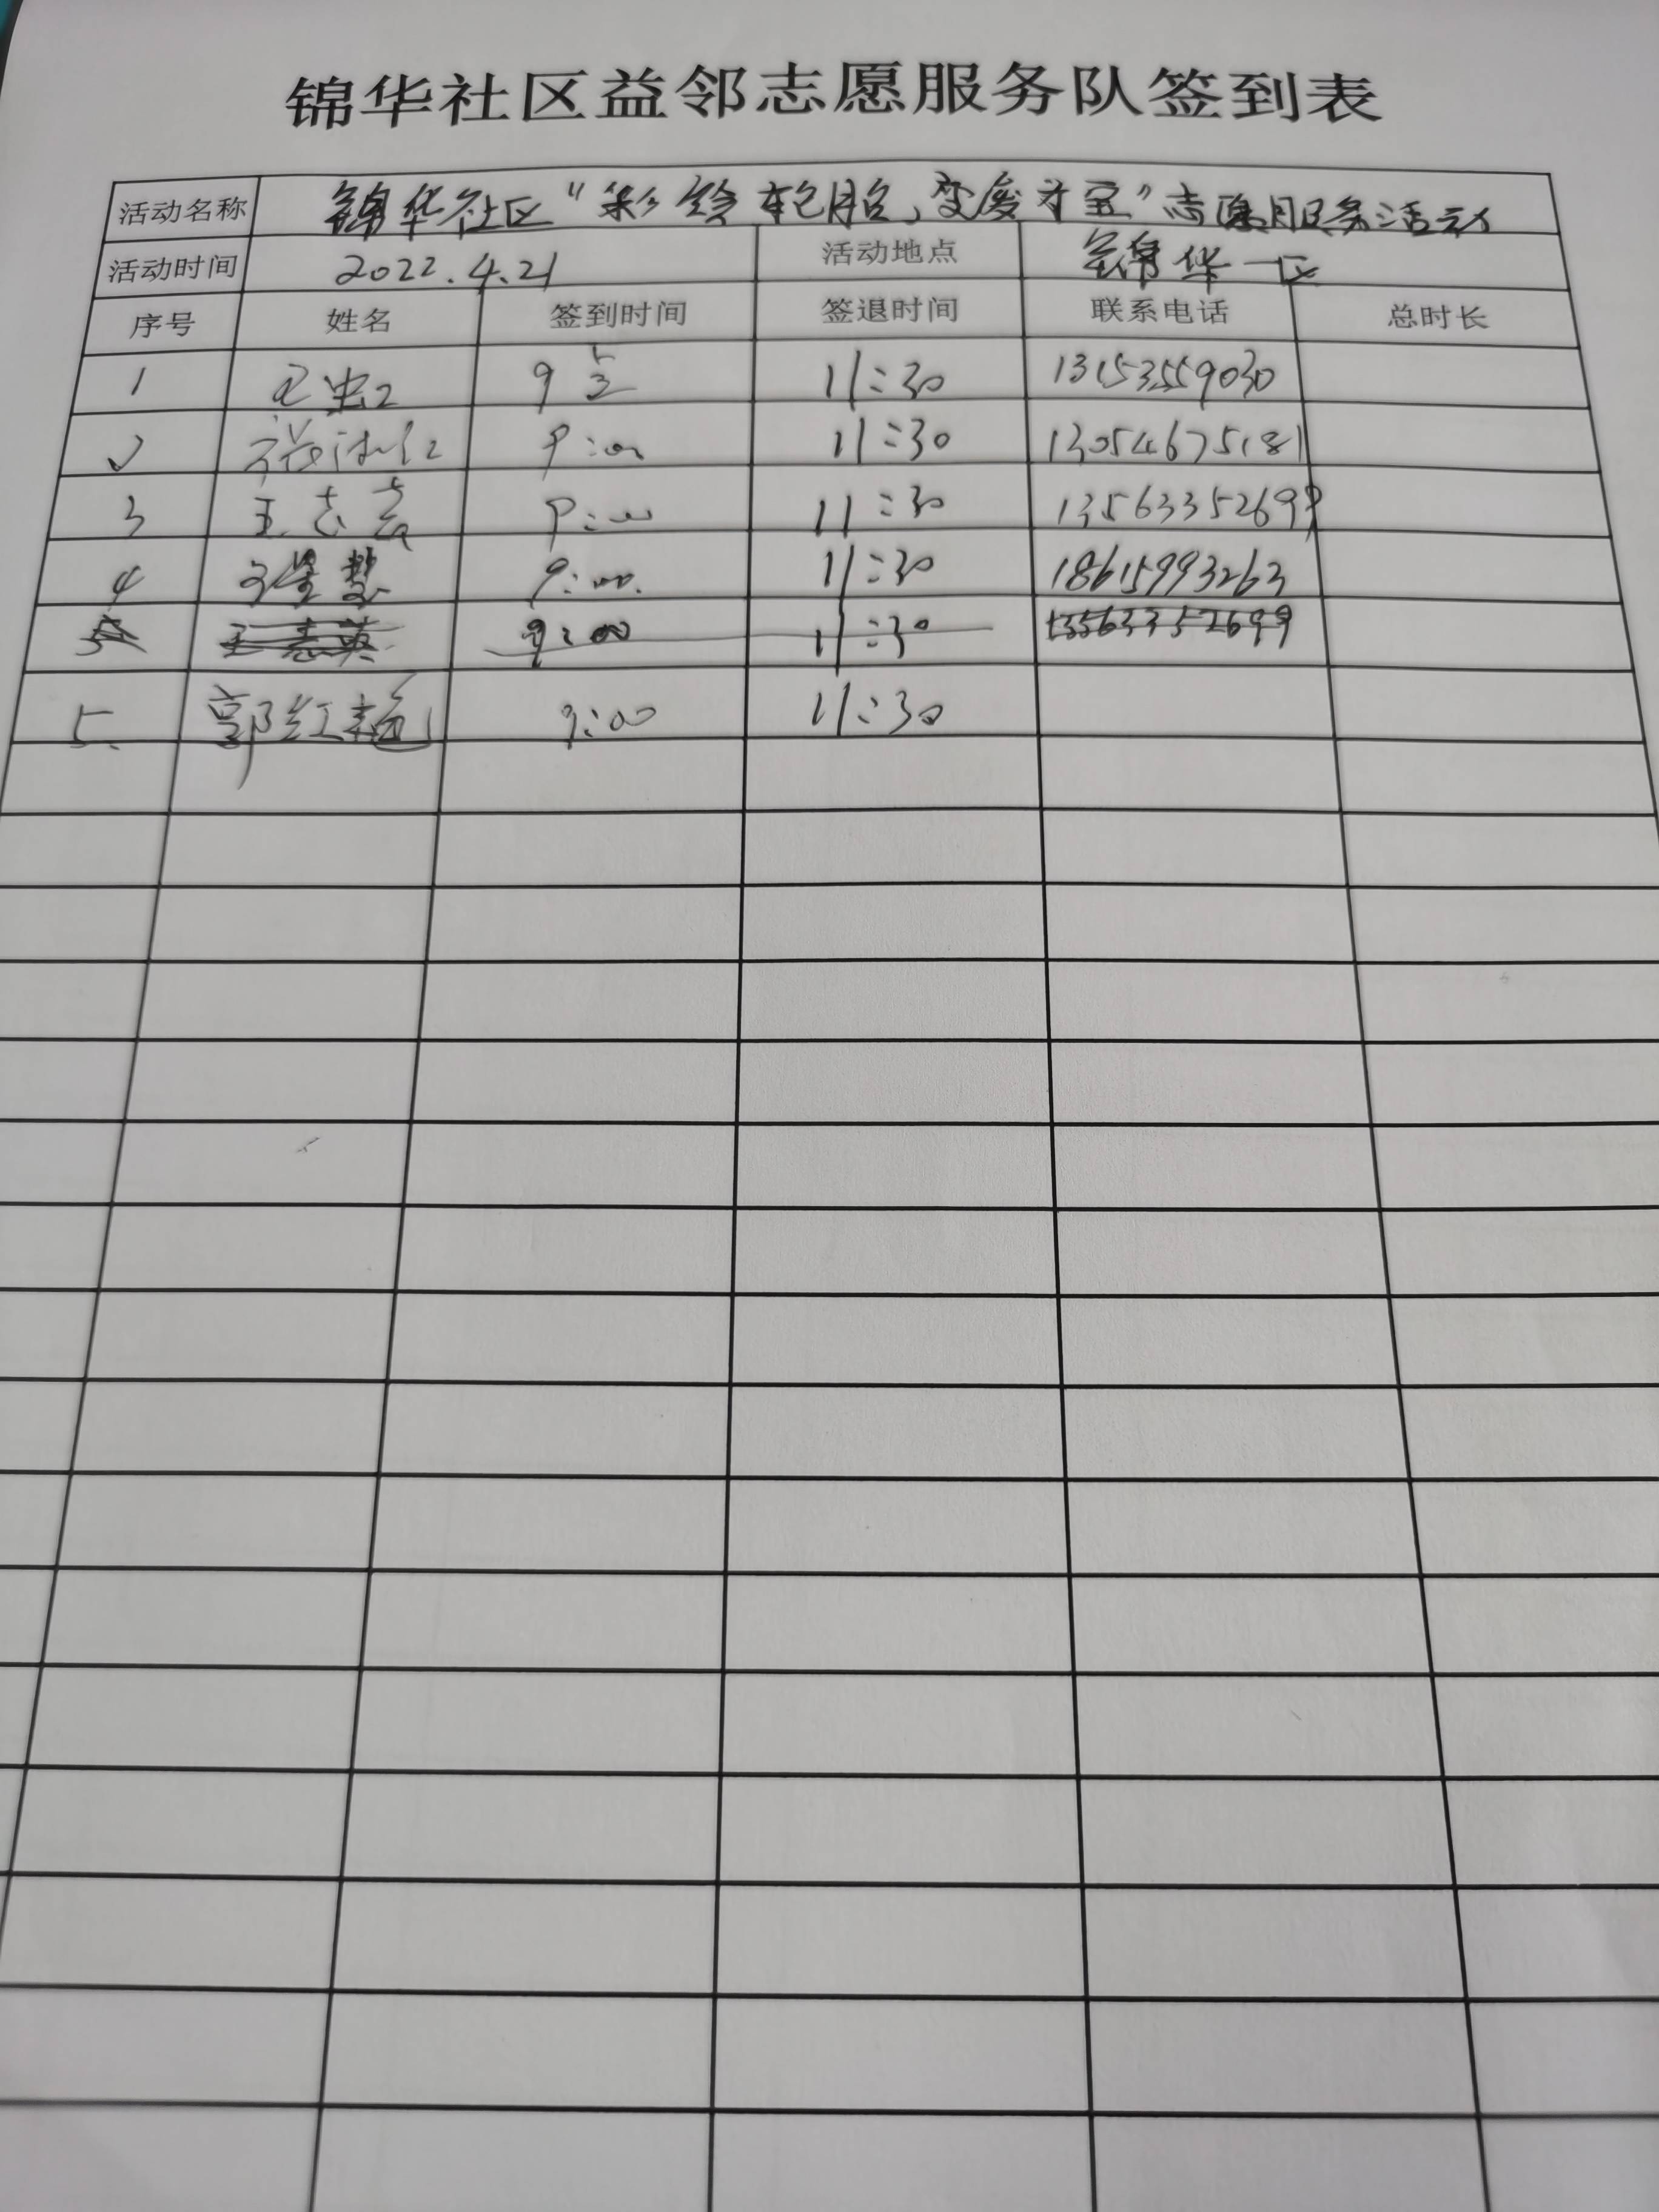 锦华社区益邻志愿服务队签到表
活动名称 锦华社区“彩绘轮胎，变废为宝”志愿服务活动
活动时间 2022.4.21 活动地点 锦华一区
序号 姓名 签到时间 签退时间 联系电话 总时长
1 9 11:30 13153559030
2 9:00 11:30 13054675181
3 王志 9:00 11:30 13563352699
4 9:00. 11:30 18615993263
5 王志英 9:00 11:30 13563352699
5. 郭红艳 9:00 11:30